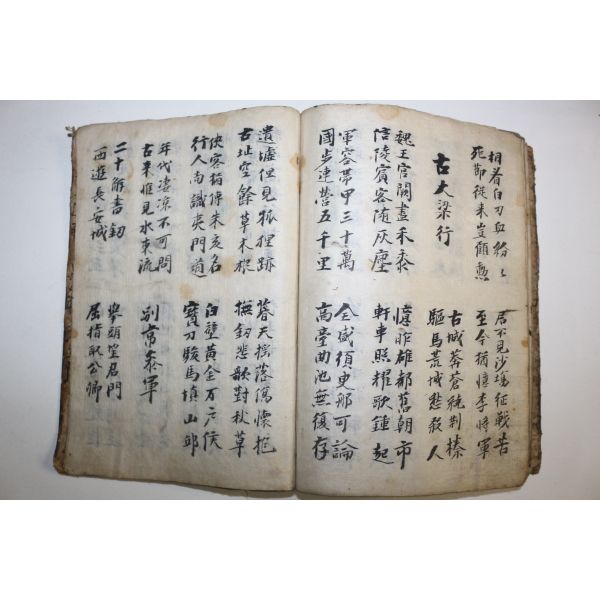 相看白刃血紛々
死節從来豈顧勲
居不見沙場征戰苦
至今猶憶李將軍
古大梁行
古城莽蒼統荆榛
驅馬荒城愁殺人
魏王宮闕盡禾黍
信陵賓客随灰塵
憶昨雄都舊朝市
軒車照耀歌鍾起
軍容帶甲三十萬
國步連營五千里
全盛須臾那可論
高臺曲池無復存
遺墟但見狐狸跡
古址空餘草木根
暮天揺落傷懷抱
撫劒悲歌對秋草
俠客猶傳朱亥名
行人尚識夷門道
白璧黃金万戶侯
寶刀駿馬填山邱
年代凄凉不可問
古来惟見水東流
別常叅軍
二十解書劒
西遊長安城
擧頭望君門
屈指取公卿